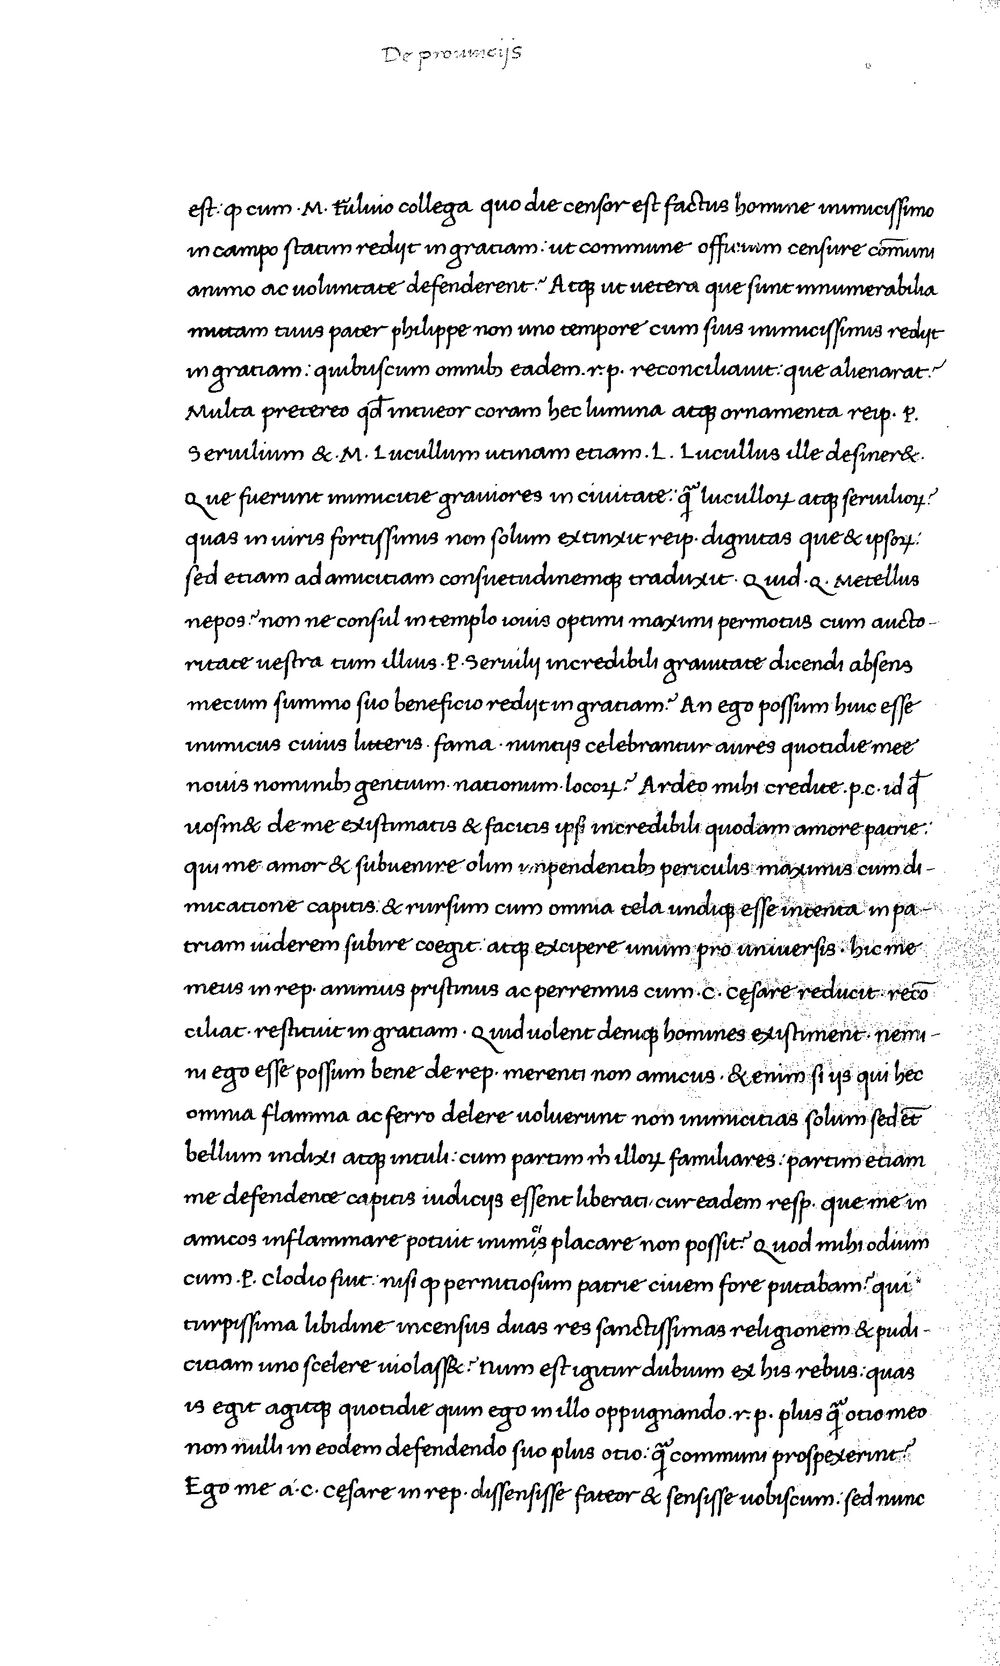 De prouincijs
est: ꝙ cum · M · Fuluio collega quo die censor est factus homine inimicissimo
in campo statim redijt in gratiam: ut commune officium censure co͞muni
animo ac uoluntate defenderent? Atqꝫ ut uetera que sunt innumerabilia
mittam tuus pater philippe non uno tempore cum suis inimicissimis redijt
in gratiam: quibuscum omnibꝫ eadem .r.p. reconciliauit: que alienarat?
Multa pretereo qđ intueor coram hec lumina atqꝫ ornamenta reip. P.
Seruilium & · M · Lucullum utinam etiam . L . Lucullus ille desiner& .
Que fuerunt inimicitie grauiores in ciuitate: q̄ꝫ lucullorꝝ atqꝫ seruiliorꝝ?
quas in uiris fortissimis non solum extinxit reip. dignitas que & ipsorꝝ:
sed etiam ad amicitiam consuetudinemqꝫ traduxit · Quid · Q · Metellus
nepos? non ne consul in templo iouis optimi maximi permotus cum aucto-
ritate uestra tum illius · P · Seruilij incredibili grauitate dicendi absens
mecum summo suo beneficio redijt in gratiam? An ego possum huic esse
inimicus cuius litteris · fama · nuntijs celebrantur aures quotidie mee
nouis nominibꝫ gentium · nationum · locorꝝ? Ardeo mihi credite .p.c. id qđ
uosm& de me existimatis & facitis ipsi incredibili quodam amore patrie:
qui me amor & subuenire olim impendentibꝫ periculis maximis cum di-
micatione capitis & rursum cum omnia tela undiqꝫ esse intenta in pa-
triam uiderem subire coegit: atqꝫ excipere unum pro uniuersis · hic me
meus in rep. animus pristinus ac perrennis cum · C · Cęsare reducit · reco͞
ciliat · restituit in gratiam · Quid uolent deniqꝫ homines existiment · nemi-
ni ego esse possum bene de rep. merenti non amicus · & enim si ijs qui hec
omnia flamma ac ferro delere uoluerunt non inimicitias solum sed et͞
bellum indixi atqꝫ intuli: cum partim m̄ illorꝝ familiares: partim etiam
me defendente capitis iudicijs essent liberati, cur eadem resp. que me in
amicos inflammare potuit inimi͡s placare non possit? Quod mihi odium
cum · P. Clodio fuit: nisi ꝙ pernitiosum patrie ciuem fore putabam? qui
turpissima libidine incensus duas res sanctissimas religionem & pudi-
citiam uno scelere uiolass&? Num est igitur dubium ex his rebus: quas
is egit agitqꝫ quotidie quin ego in illo oppugnando .r.p. plus q̄ꝫ otio meo
non nulli in eodem defendendo suo plus otio: q̄ꝫ communi prospexerint?
Ego me á · C · Cęsare in rep. dissensisse fateor & sensisse uobiscum: sed nunc